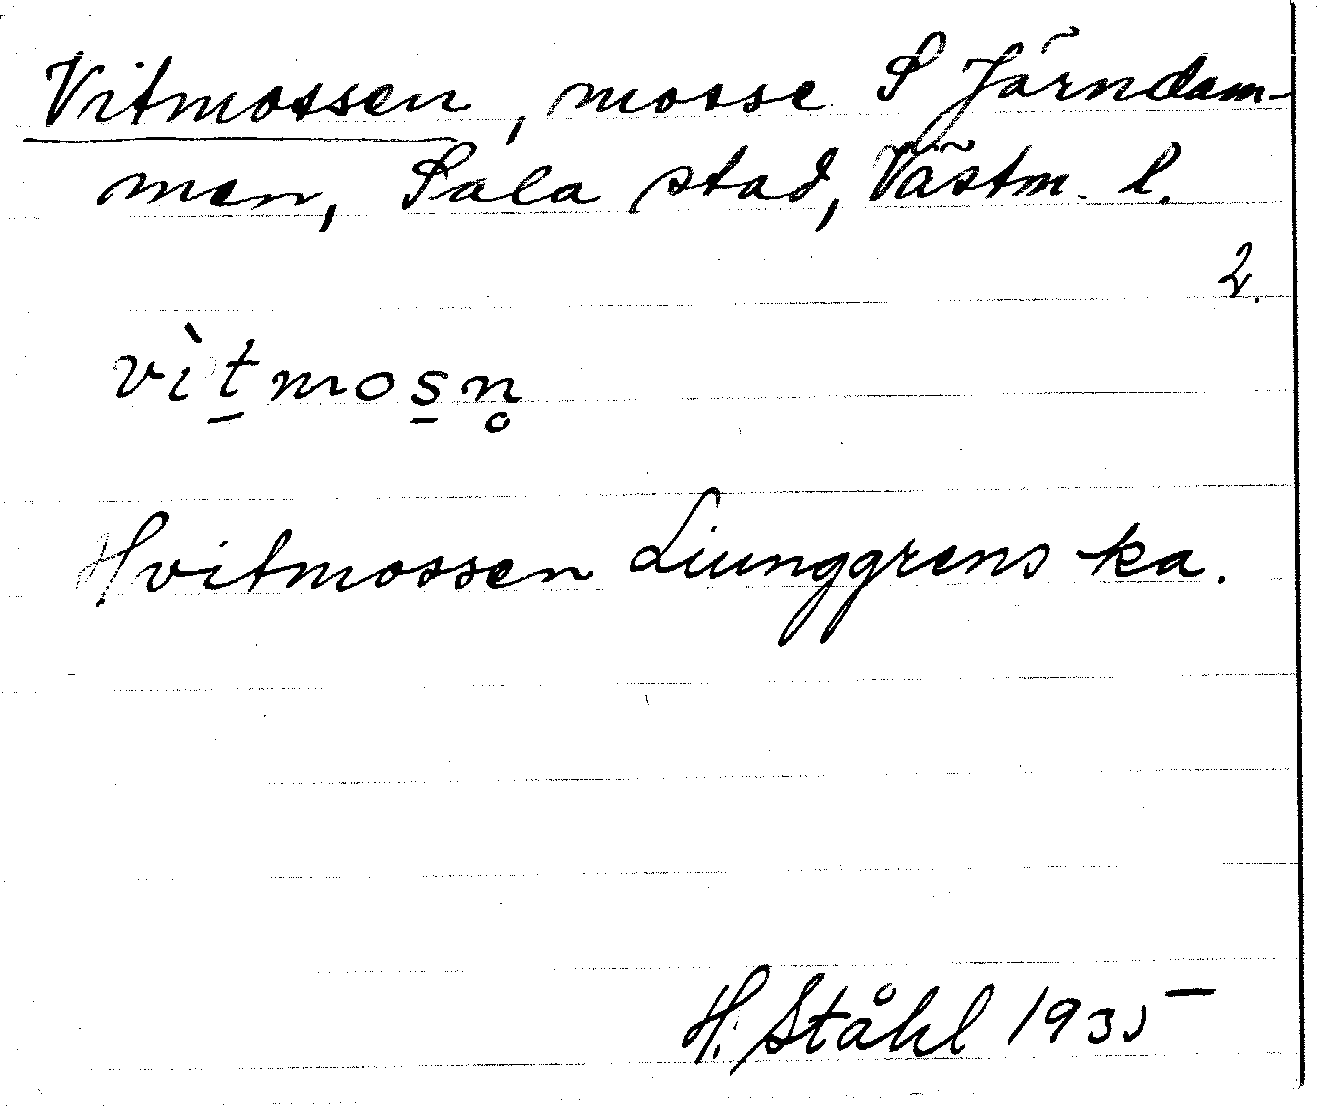 Vitmossen, mosse S Järndam-
men, Sala stad, Västm. l.
2.
vìt̠mos̠n̥
Hvitmossen Ljunggrens ka.
H. Ståhl 1935